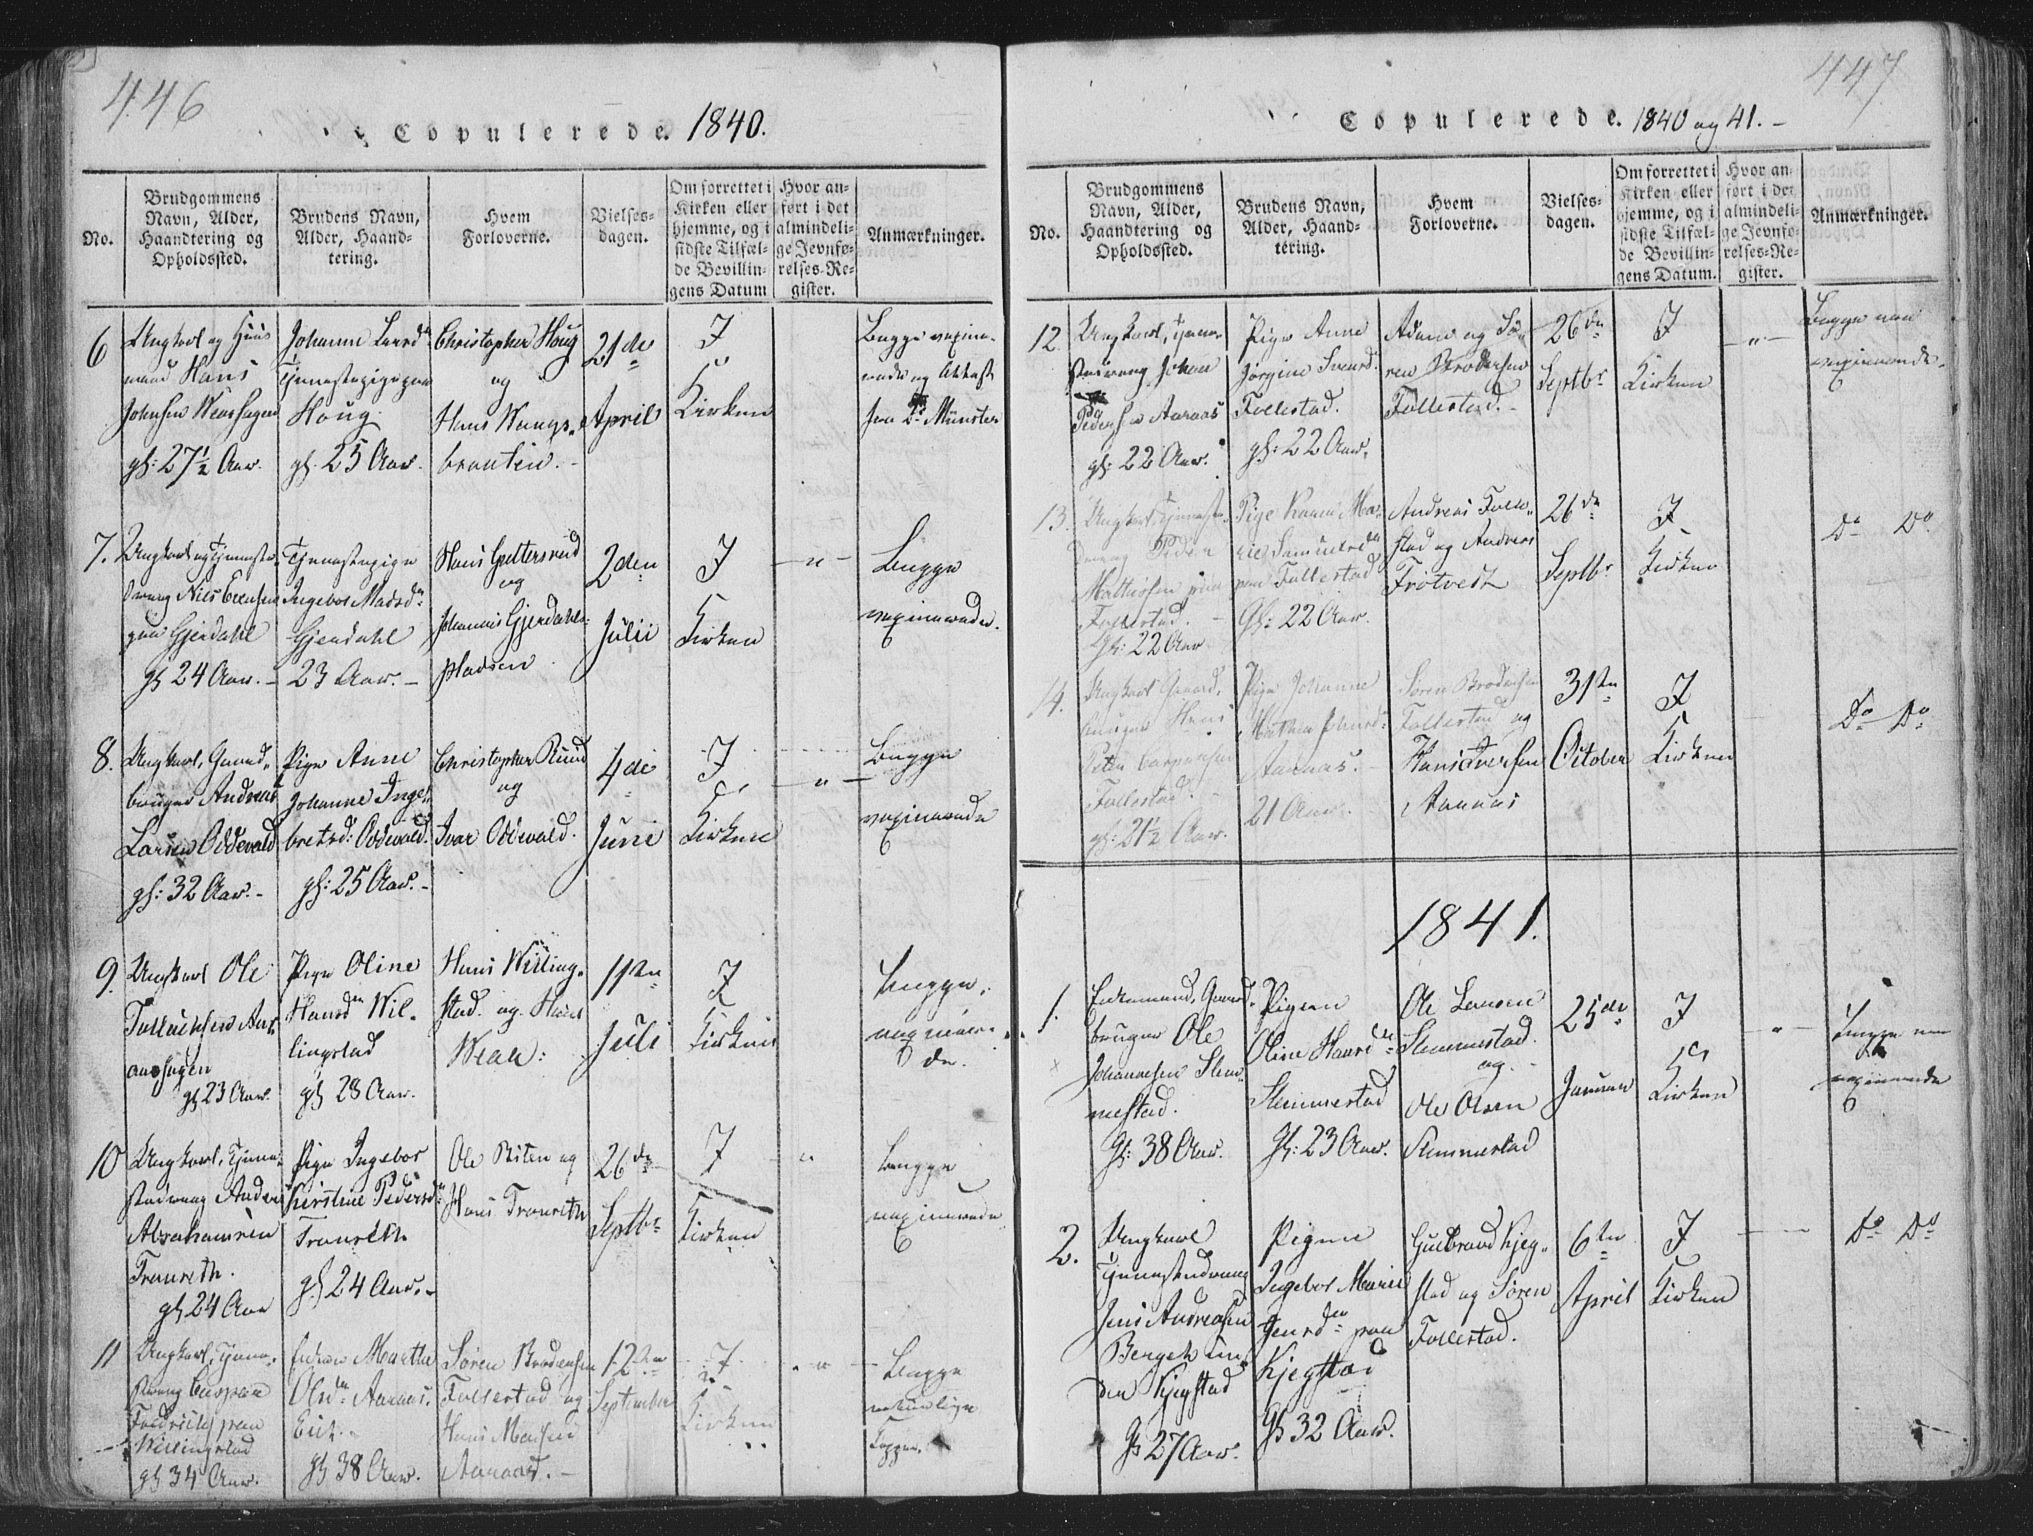 446
Copulerede. 1840.
No.
Brudgommens
Navn, Alder,
Haandtering og
Opholdssted.
Brudens Navn,
Alder, Haand-
tering.
Hvem
Forloverne.
Vielses-
dagen.
Om forrettet i
Kirken eller
hjemme, og i
sidste Tilfæl-
de Bevillin-
gens Datum
Hvor an-
ført i det
almindeli-
ge Jevnfø-
relses-Re-
gister.
Anmærkninger.
6
Ungkarl og Huus
mand Hans
Johnsen
gl: 27½ Aar.
Johanne
Tjenestepige paa
Houg.
gl. 25 Aar.
Christopher Houg
og
Hans Wangs-
braaten.
21de
April
I
Kirken
Begge vaxine-
rede og Attest
fra Münster
7.
Ungkarl og Tjeneste-
dreng Niels Evensen
paa Gjerdahl
gl 24 Aar.
Tjenestepige
Ingebor Madsd.
Gjerdahl
23 Aar.
Hans Guttersrud
og
Johannes Gjerdahls-
pladsen
2den
Julii
I
Kirken
Begge
vaxinerede.
8.
Ungkarl, Gaard-
bruger Andreas
Larsen Oddevald
gl: 32 Aar.
Pige Anne
Johanne Inge-
bretsd: Oddevald.
gl: 25 Aar.
Christopher Ruud
og
Ivar Oddevald.
4de
Juni
I
Kirken
Begge
vaxinerede
9.
Ungkarl Ole
gl 23 Aar.
Pige Oline
Hansd Wil-
lingstad
gl 28 Aar.
Hans Willing-
stad og Hans
11te
Juli
I
Kirken
Begge
vaxinere-
de.
10
Ungkarl, Tjene-
stedreng Anders
Abrahamsen
Tranreth.
gl 24 Aar
Pige Ingebor
Kirstine Pedersd
Tranreth
gl 24 Aar.
Ole og
Hans Tranreth
26de
Septbr
I
Kirken
Begge
vaxinerede
11
Ungkarl, Tjene-
dreng Caspar
Fredriks paa
Willingstad
gl 34 Aar.
Enken Marthe
Olsd. Aaraas.
gl 38 Aar.
Søren Brodersen
Follestad og
Hans Madsen
Aaraas.
12te
September
I
Kirken
Begge
naturlige
Kopper.
447
Copulerede. 1840 og 41.
No.
Brudgommens
Navn, Alder,
Haandtering og
Opholdssted.
Brudens Navn,
Alder, Haand-
tering.
Hvem
Forloverne.
Vielses-
dagen.
Om forrettet i
Kirken eller
hjemme, og i
sidste Tilfæl-
de Bevillin-
gens Datum.
Hvor an-
ført i det
almindeli-
ge Jevnfø-
relses-Re-
gister.
Anmærkninger.
12.
Ungkarl, Tjene-
stedreng Johan
Pedersen Aaraas
gl: 22 Aar.
Pige Anne
Jørgine
Follestad.
gl: 22 Aar.
Adam og Sø-
ren Brodersen
Follestad.
26de
Septbr
I
Kirken
Begge ere
vaxinerede.
13.
Ungkarl, Tjeneste-
dreng Peder
Mathisen paa
Follestad.
Gl: 22 Aar
Pige Karen Ma-
rie Samuelsd
paa Follestad
Gl: 22 Aar.
Andreas Folle-
stad og Anders
Trotvedt
26de
Septbr
I
Kirken
Do Do
14.
Ungkarl Gaard-
bruger Hans
Peter Caspersen
Follestad.
gl: 21½ Aar.
Pige Johanne
Mathea
Aaraas.
21 Aar.
Søren Brodersen
Follestad og
Hans Iversen
Aaraas
31te
October
I
Kirken
Do Do
1841.
1.
Enkemand, Gaard-
bruger Ole
Johannesen Slem-
mestad.
Gl: 38 Aar.
Pigen
Oline Hansd
Slemmestad
Gl: 23 Aar.
Ole Larsen
Slemmestad.
og
Ole Olsen
Slemmestad
25de
Januar
I
Kirken
Begge ere
vaxinerede
2.
Ungkarl
Tjenestedreng
Jens Andreasen
Kjegstad
Gl 27 Aar.
Pigen
Ingebor Marie
Jensd paa
Kjegstad
Gl 32 Aar.
Gulbrand Kjeg-
stad og Søren
Follestad.
6te
April
I
Kirken
Do Do